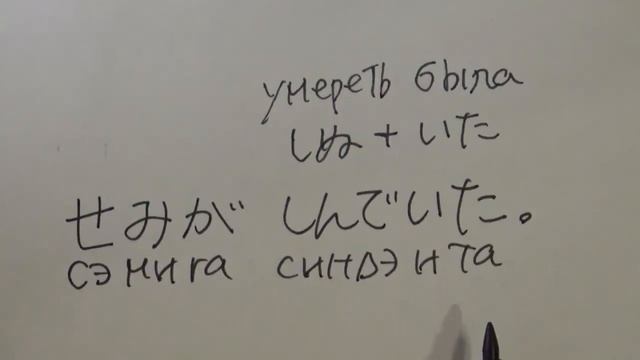 умереть была
しぬ + いた
せみが しんでいた。
сэмига синдэита